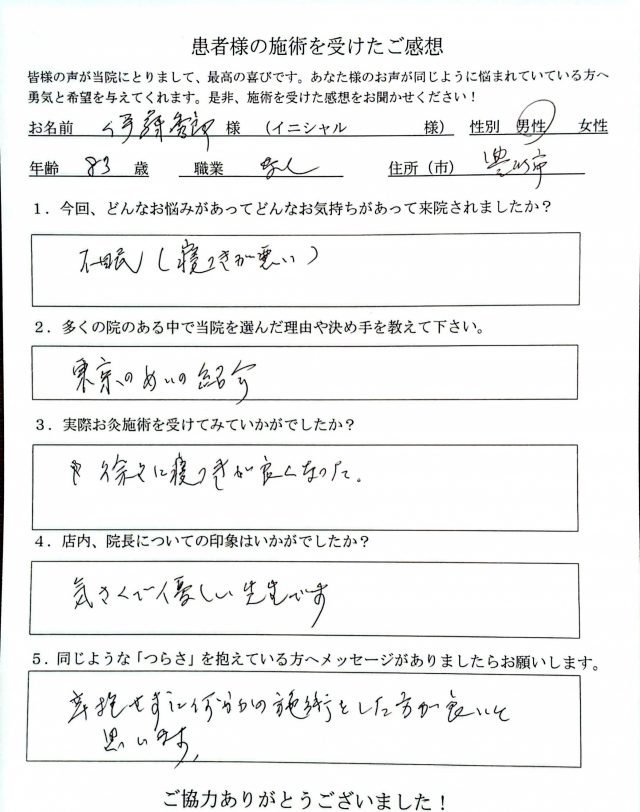 患者様の施術を受けたご感想
皆様の声が当院にとりまして、最高の喜びです。あなた様のお声が同じように悩まれていている方へ
勇気と希望を与えてくれます。是非、施術を受けた感想をお聞かせください！
お名前 様 （イニシャル 様） 性別 男性 女性
年齢 83 歳 職業 なし 住所（市） 豊川市
１．今回、どんなお悩みがあってどんなお気持ちがあって来院されましたか？
不眠（寝つきが悪い）
２．多くの院のある中で当院を選んだ理由や決め手を教えて下さい。
東京のめいの紹介
３．実際お灸施術を受けてみていかがでしたか？
徐々に寝つきが良くなった。
４．店内、院長についての印象はいかがでしたか？
気さくで優しい先生です
５．同じような「つらさ」を抱えている方へメッセージがありましたらお願いします。
辛抱せずに何分かの施術をした方が良いと
思います。
ご協力ありがとうございました！